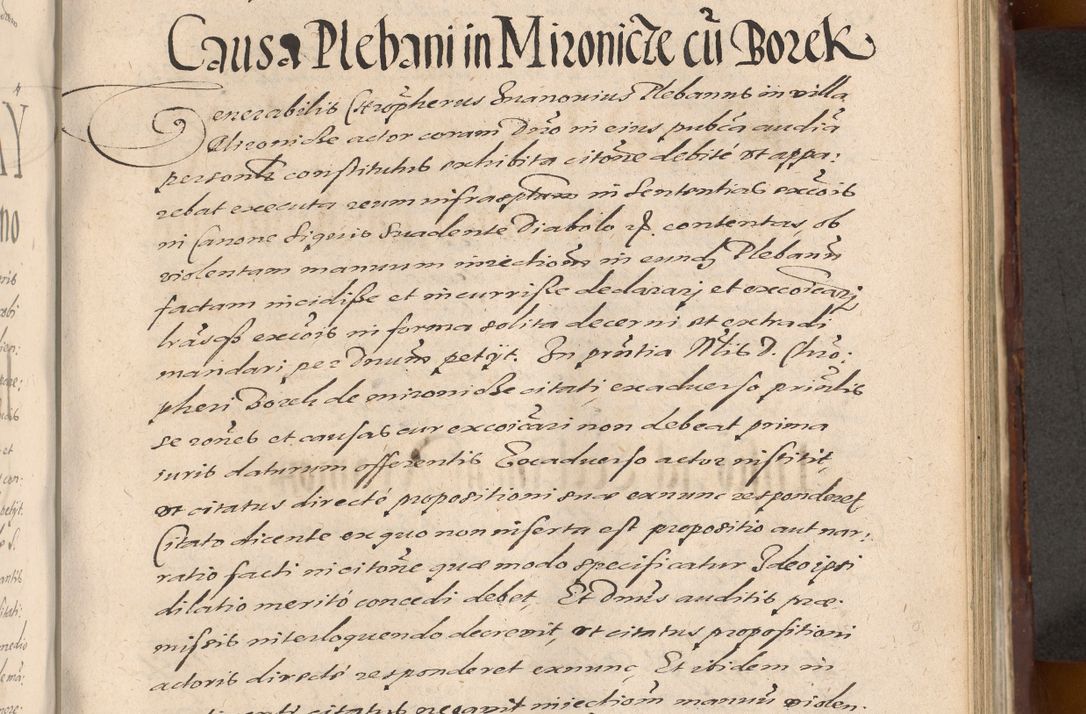 Causa Plebani in Mironicze cũ Borek
Venerabilis Chrõpherus Iwanovius Plebanus in villa
Mironicze actor coram Dño in eius pubca audiã
personlr constitutus exhibita citõne debité ut appa:
rebat executa reum infrascptum in sententias excõis
in Canone Siquis Suadente Diabolo &. contentas, ob
violentam manuum iniectionem in eund Plebanũ
factam incidisse et incurrisse declarari et excõicarj
lrãsqs excõis in forma solita decerni et extradi
mandari per Dnum petijt. In prñtia Nlis D. Chrõ:
pheri Borek de mironicze citati exadverso prinlis
se rones et causas cur excõicari non debeat prima
iuris daturum offerentis Exadverso actor institit,
ut citatus directé propositioni suæ exnunc responderet
Citato dicente ex quo non inserta est propositio aut nar:
ratio facti in citõne quæ modo specificatur Ideo ipsi
dilatio meritó concedi debet, Et Dnus auditis præ
missis interloquendo decrevit, ut citatus propositioni
actoris directé responderet exnunc, Et ibidem in
citatus negavit iniectionem manuũ violen.